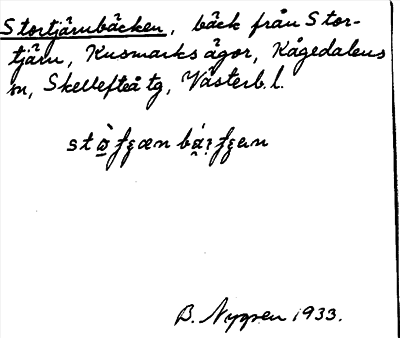 Stortjärnbäcken, bäck från Stor-
tjärn, Kusmarks ägor, Kågedalens
sn, Skellefteå tg, Västerb. l.
B. Nygren 1933.